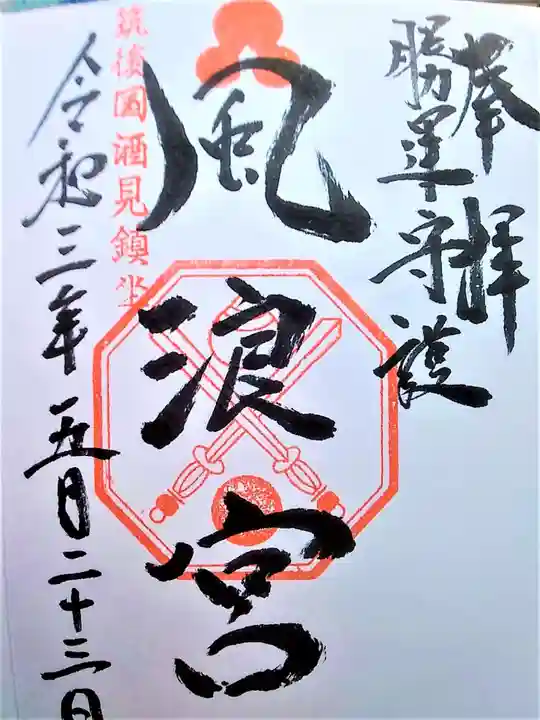 奉拝
勝運守護
風浪宮
筑後国酒見鎮坐
令和三年五月二十三日